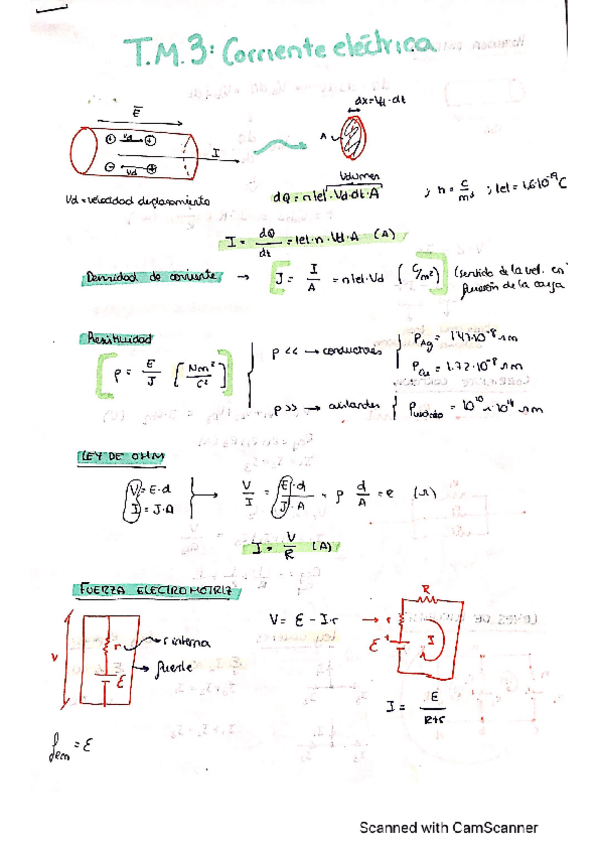 T.M.3: Corriente eléctrica
dx=Vd·dt
E
Vd
I
A
Vd
Vd = velocidad desplazamiento
Volumen
dQ = n|e|·Vd·dt·A ; n = C/m³ ; |e| = 1,6·10⁻¹⁹ C
I = dQ/dt = |e|·n·Vd·A (A)
Densidad de corriente → [J = I/A = n|e|·Vd (C/m²)] (sentido de la vel. en
función de la carga
Resitividad
[ρ = E/J [Nm²/C²]]
ρ << → conductores { ρAg = 1'47·10⁻⁸ Ωm
ρCu = 1.72·10⁻⁸ Ωm
ρ >> → aislantes { ρvidrio = 10¹⁰ 10¹⁴ Ωm
LEY DE OHM
V = E·d
I = J·A
V/I = E·d/J·A = ρ d/A = R (Ω)
I = V/R (A)
FUERZA ELECTROMOTRIZ
V
r
r interna
fuente
ε
V = ε - I·r
R
r
ε
I
I = ε/R+r
fem = ε
Scanned with CamScanner